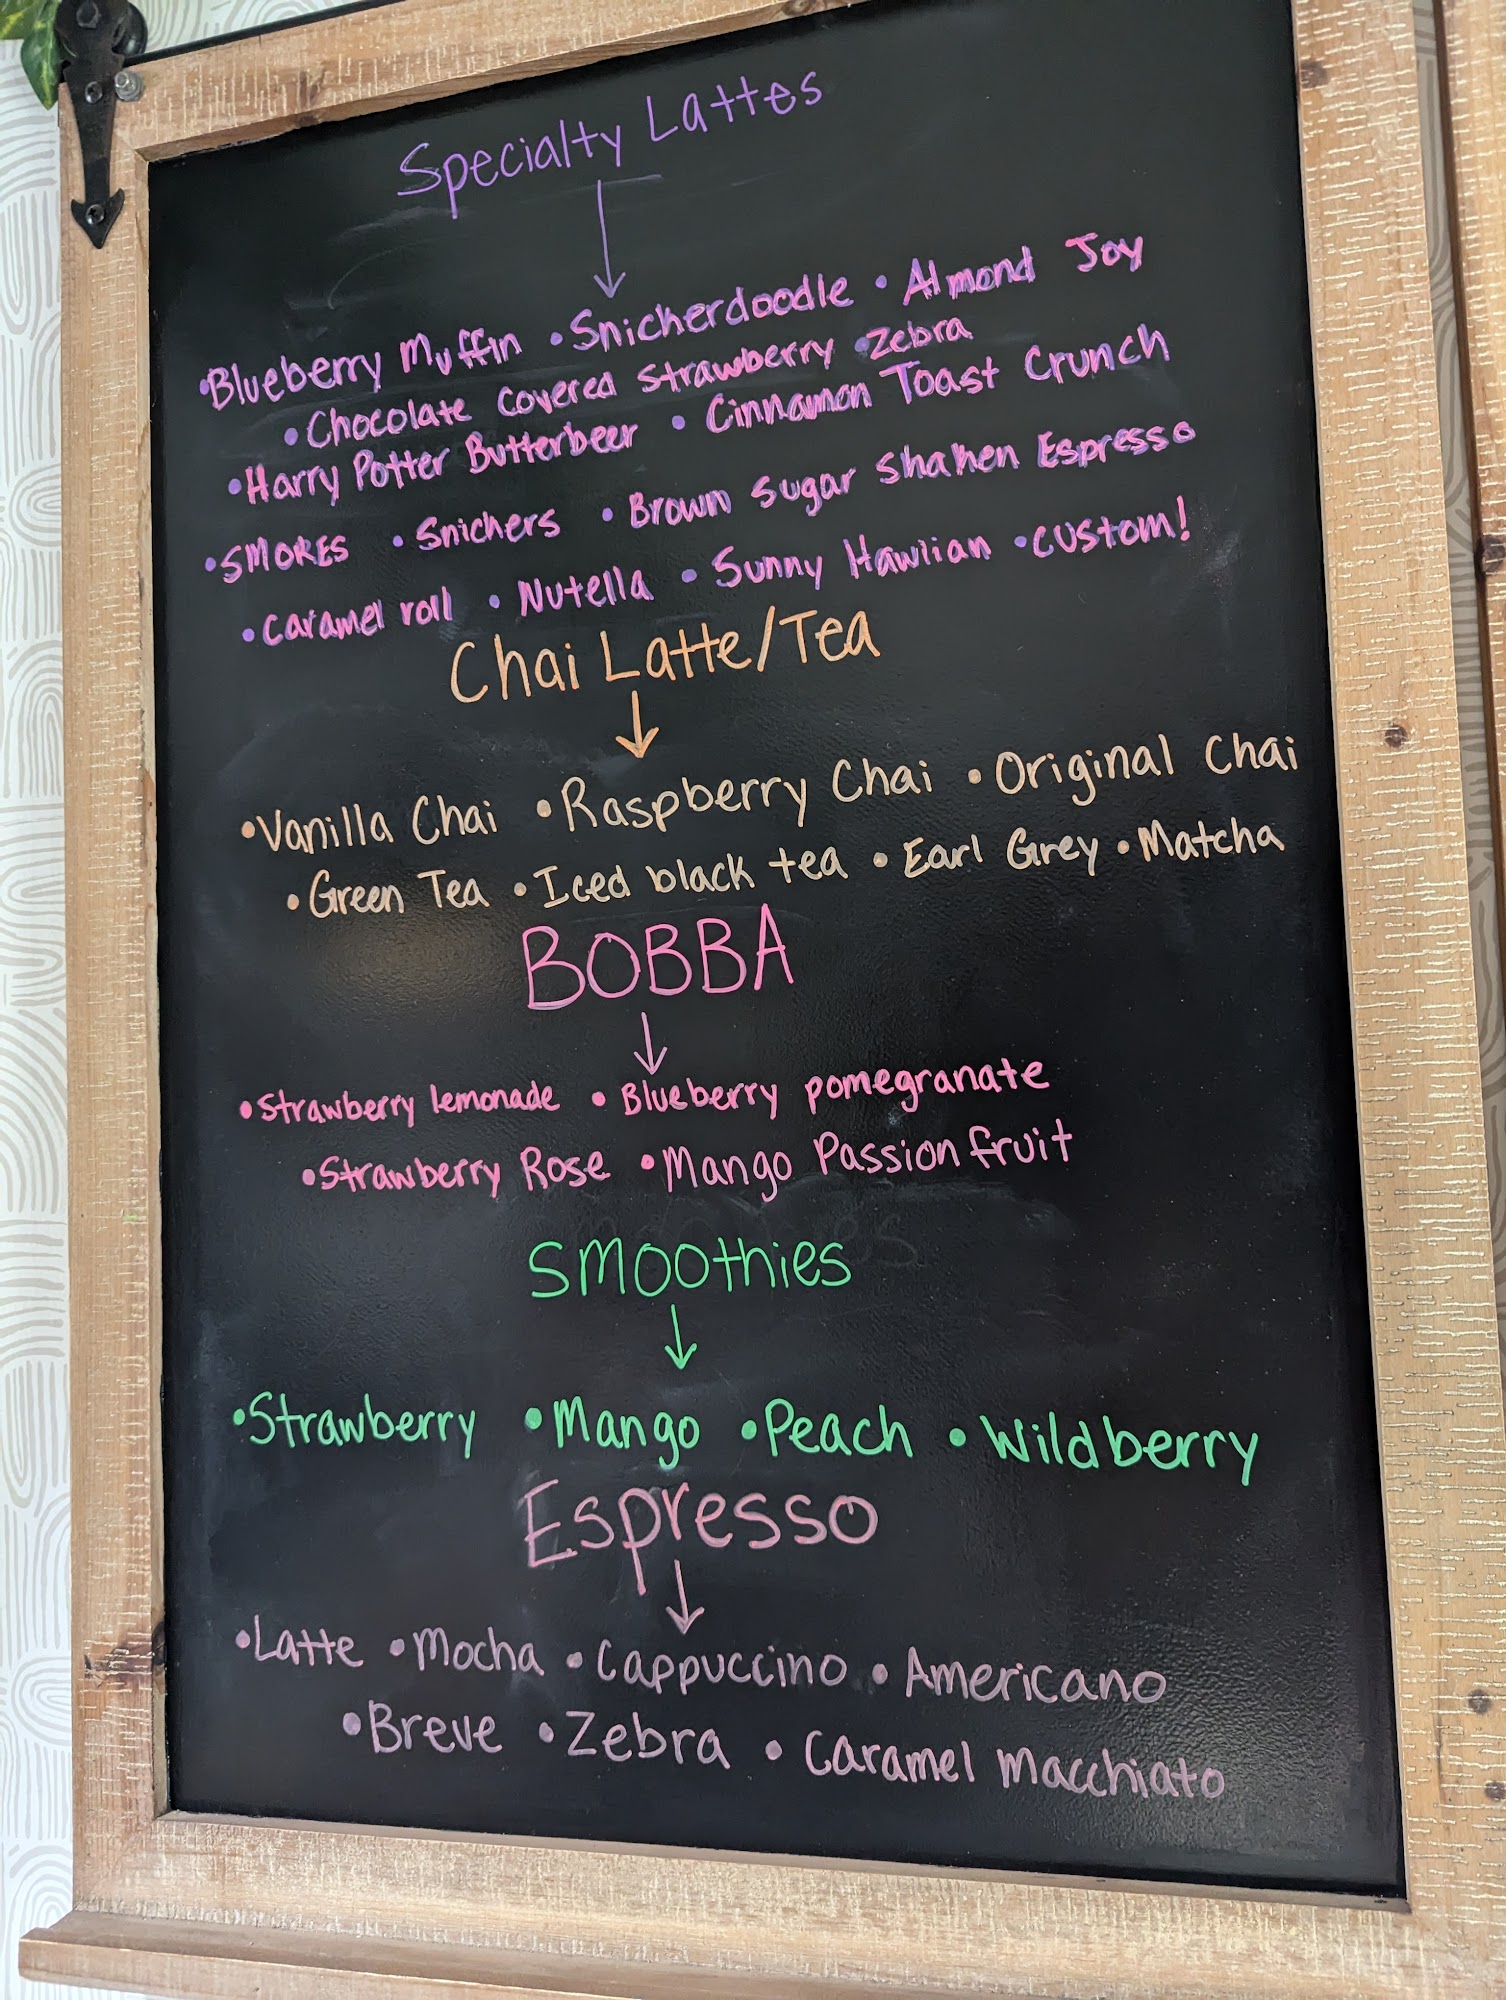 Specialty Lattes
•Blueberry Muffin •Snickerdoodle •Almond Joy
•Chocolate Covered Strawberry •Zebra
•Harry Potter Butterbeer •Cinnamon Toast Crunch
•SMORES •Snickers •Brown Sugar Shaken Espresso
•Caramel roll •Nutella •Sunny Hawiian •CUSTOM!
Chai Latte/Tea
•Vanilla Chai •Raspberry Chai •Original Chai
•Green Tea •Iced black tea •Earl Grey •Matcha
BOBBA
•Strawberry lemonade •Blueberry pomegranate
•Strawberry Rose •Mango Passion fruit
Smoothies
•Strawberry •Mango •Peach •Wildberry
Espresso
•Latte •Mocha •Cappuccino •Americano
•Breve •Zebra •Caramel Macchiato